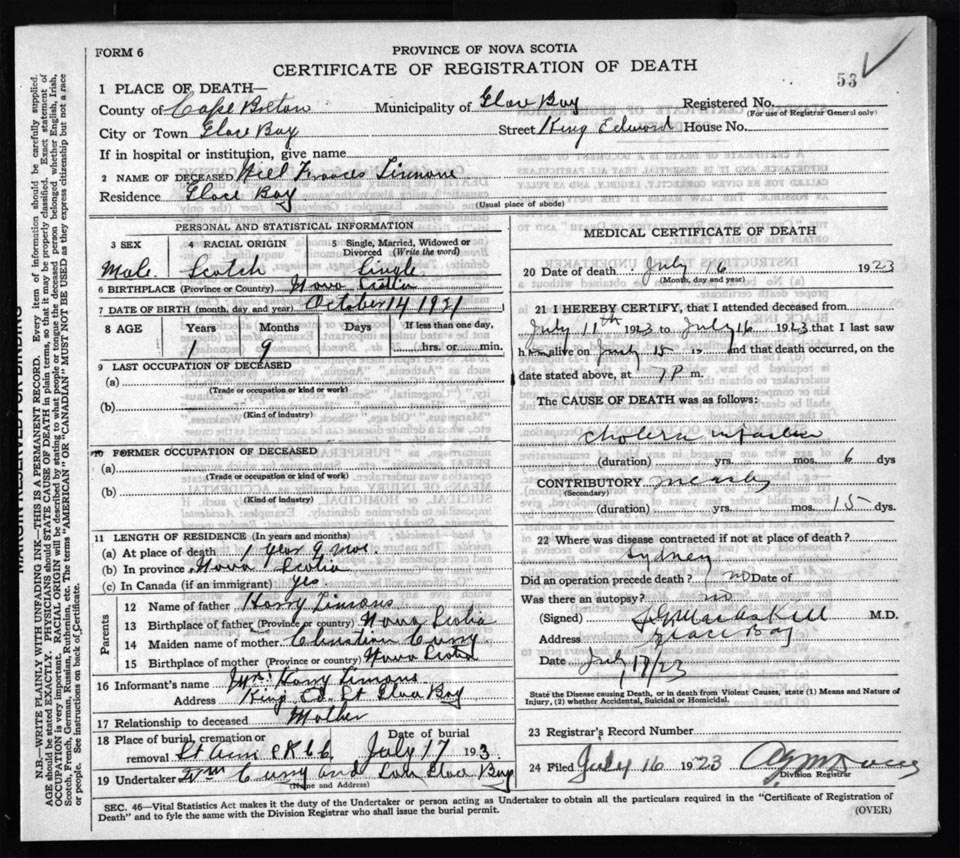 FORM 6
PROVINCE OF NOVA SCOTIA
CERTIFICATE OF REGISTRATION OF DEATH
53
1 PLACE OF DEATH—
County of Cape Breton Municipality of Glace Bay Registered No.
(For use of Registrar General only)
City or Town Glace Bay Street King Edward House No.
If in hospital or institution, give name
2 NAME OF DECEASED Francis
Residence Glace Bay
(Usual place of abode)
PERSONAL AND STATISTICAL INFORMATION
3 SEX 4 RACIAL ORIGIN 5 Single, Married, Widowed or Divorced (Write the word)
Male Scotch Single
6 BIRTHPLACE (Province or Country) Nova Scotia
7 DATE OF BIRTH (month, day and year) October 14 1921
8 AGE Years Months Days If less than one day,
1 9 hrs. or min.
9 LAST OCCUPATION OF DECEASED
(a)
(Trade or occupation or kind or work)
(b)
(Kind of industry)
10 FORMER OCCUPATION OF DECEASED
(a)
(Trade or occupation or kind of work)
(b)
(Kind of industry)
11 LENGTH OF RESIDENCE (In years and months)
(a) At place of death 1 Year 9 Mos.
(b) In province Nova Scotia
(c) In Canada (if an immigrant) yes
Parents
12 Name of father Harry Simons
13 Birthplace of father (Province or country) Nova Scotia
14 Maiden name of mother Curry
15 Birthplace of mother (Province or country) Nova Scotia
16 Informant's name Mrs. Harry Simons
Address King Ed. St Glace Bay
17 Relationship to deceased Mother
18 Place of burial, cremation or removal St Ann Date of burial July 17 193
19 Undertaker Wm Curry and Glace Bay
(Name and Address)
MEDICAL CERTIFICATE OF DEATH
20 Date of death July 16 1923
(Month, day and year)
21 I HEREBY CERTIFY, that I attended deceased from
July 11th 1923 to July 16 1923 that I last saw
h im alive on July 15 and that death occurred, on the
date stated above, at 7 P m.
The CAUSE OF DEATH was as follows:
cholera infantum
(duration) yrs. mos. 6 dys
CONTRIBUTORY measles
(Secondary)
(duration) yrs. mos. 15 dys.
22 Where was disease contracted if not at place of death?
Sydney
Did an operation precede death? no Date of
Was there an autopsy? no
(Signed) M.D.
Address Glace Bay
Date July 17/23
State the Disease causing Death, or in death from Violent Causes, state (1) Means and Nature of
Injury, (2) whether Accidental, Suicidal or Homicidal.
23 Registrar's Record Number
24 Filed July 16 1923
Division Registrar
SEC. 46—Vital Statistics Act makes it the duty of the Undertaker or person acting as Undertaker to obtain all the particulars required in the "Certificate of Registration of
Death" and to fyle the same with the Division Registrar who shall issue the burial permit.
(OVER)
MARGIN RESERVED FOR BINDING
N.B.—WRITE PLAINLY WITH UNFADING INK—THIS IS A PERMANENT RECORD. Every item of information should be carefully supplied.
AGE should be stated EXACTLY. PHYSICIANS should STATE CAUSE OF DEATH in plain terms, so that it may be properly classified. Exact statement of
OCCUPATION is very important. RACIAL ORIGIN will be described by stating to what people or tongue the deceased person belonged, whether English, Irish,
Scotch, French, German, Russian, Ruthenian, etc. The terms "AMERICAN" OR "CANADIAN" MUST NOT BE USED as they express citizenship but not a race
or people. See instructions on back of Certificate.